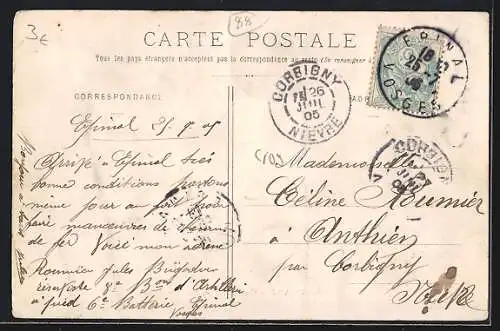 3€
88
CARTE POSTALE
Tous les pays étrangers n'acceptent pas la correspondance au recto
CORRESPONDANCE
EPINAL
VOSGES
CORBIGNY
26
JUIL
05
NIEVRE
CORBIGNY
27
JUIL
05
Epinal 25-7-05
Arrivé à Epinal très
bonne conditions partons
même jour au
faire manœuvres de chemin
de fer Voici mon adresse
Roumier Jules Brigadier
réserviste 8e Bon d'Artillerie
à pied 6e Batterie Epinal
Vosges
Mademoiselle
Céline Roumier
à
Anthien
par Corbigny
Nièvre